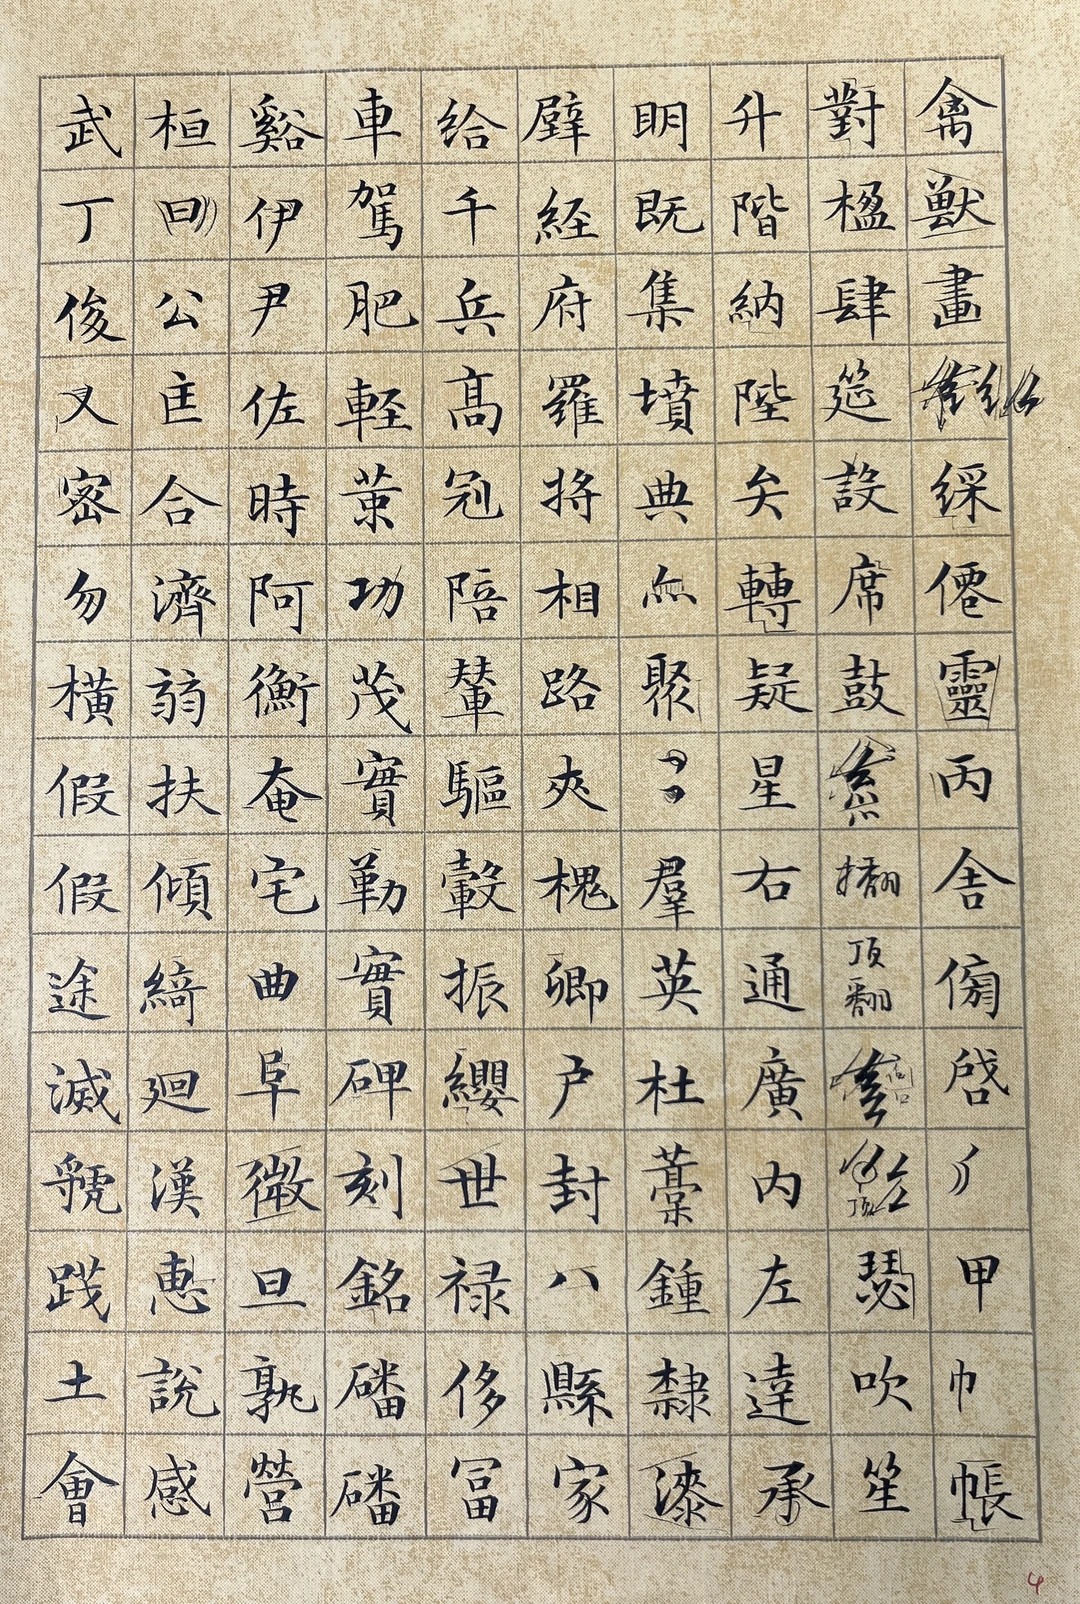 禽獸畫綵僊靈丙舍傍啓甲巾帳
對楹肆筵設席鼓頂翻瑟吹笙
升階納陛矣轉疑星右通廣内左達承
明既集墳典灬聚羣英杜藁鍾隸漆
壁経府羅将相路夾槐卿戶封八縣家
给千兵高冠陪輦驅轂振纓世禄侈冨
車駕肥軽策功茂實勒實碑刻銘磻磻
谿伊尹佐時阿衡奄宅曲阜微旦孰營
桓曰公匡合濟弱扶傾綺廻漢恵說感
武丁俊乂密勿横假假途滅虢践土會
4